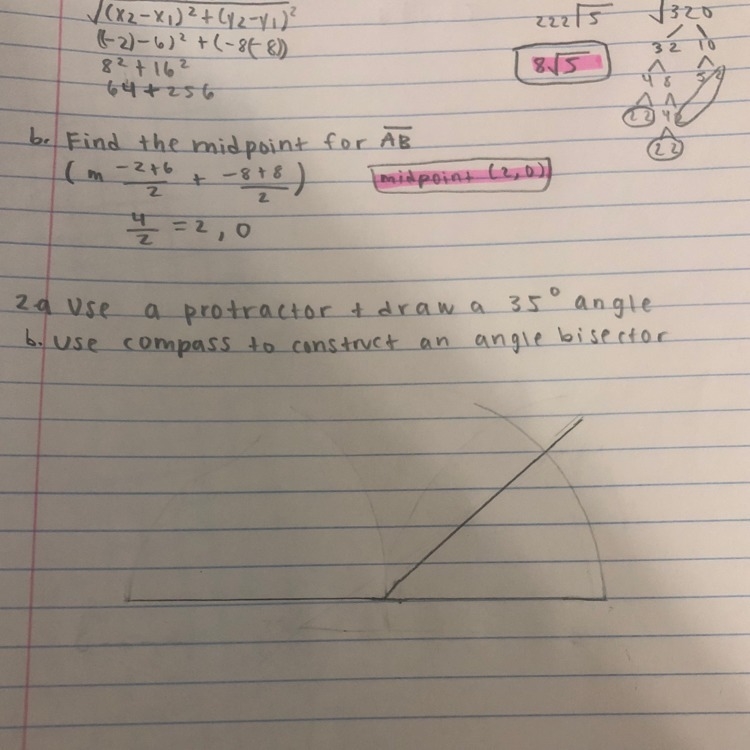 √(x₂-x₁)²+(y₂-y₁)²
((-2)-6)² + (-8(-8))
8² + 16²
64 + 256
222√5
8√5
√320
32 10
4 8 5 2
22 42
22
b. Find the midpoint for AB
(m -2+6/2 + -8+8/2)
midpoint (2,0)
4/2 = 2, 0
2a Use a protractor + draw a 35° angle
b. Use compass to construct an angle bisector